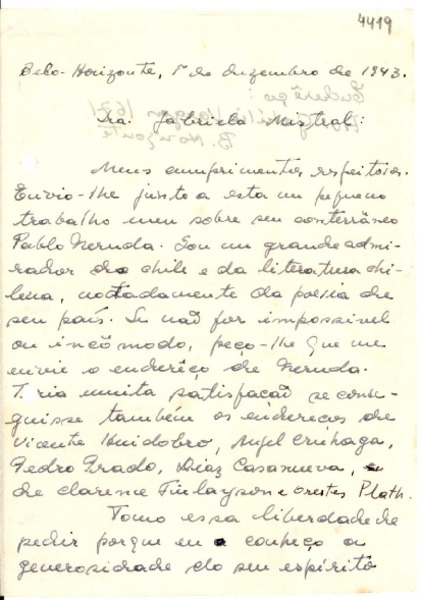 4419
Belo-Horizonte, 1º de dezembro de 1943.
Sra. Gabriela Mistral:
Meus cumprimentos respeitosos.
Envio-lhe junto a esta um pequeno
trabalho meu sobre seu conterrâneo
Pablo Neruda. Sou um grande admi-
rador do Chile e da literatura chi-
lena, notadamente da poesia de
seu país. Se não for impossível
ou incômodo, peço-lhe que me
envie o endereço de Neruda.
Teria muita satisfação se conse-
guisse também os endereços de
Vicente Huidobro, Angel Cruhaga,
Pedro Prado, Diaz Casanueva,
de Clarence Finlayson e Orestes Plath.
Tomo essa liberdade de
pedir porque eu conheço a
generosidade do seu espírito